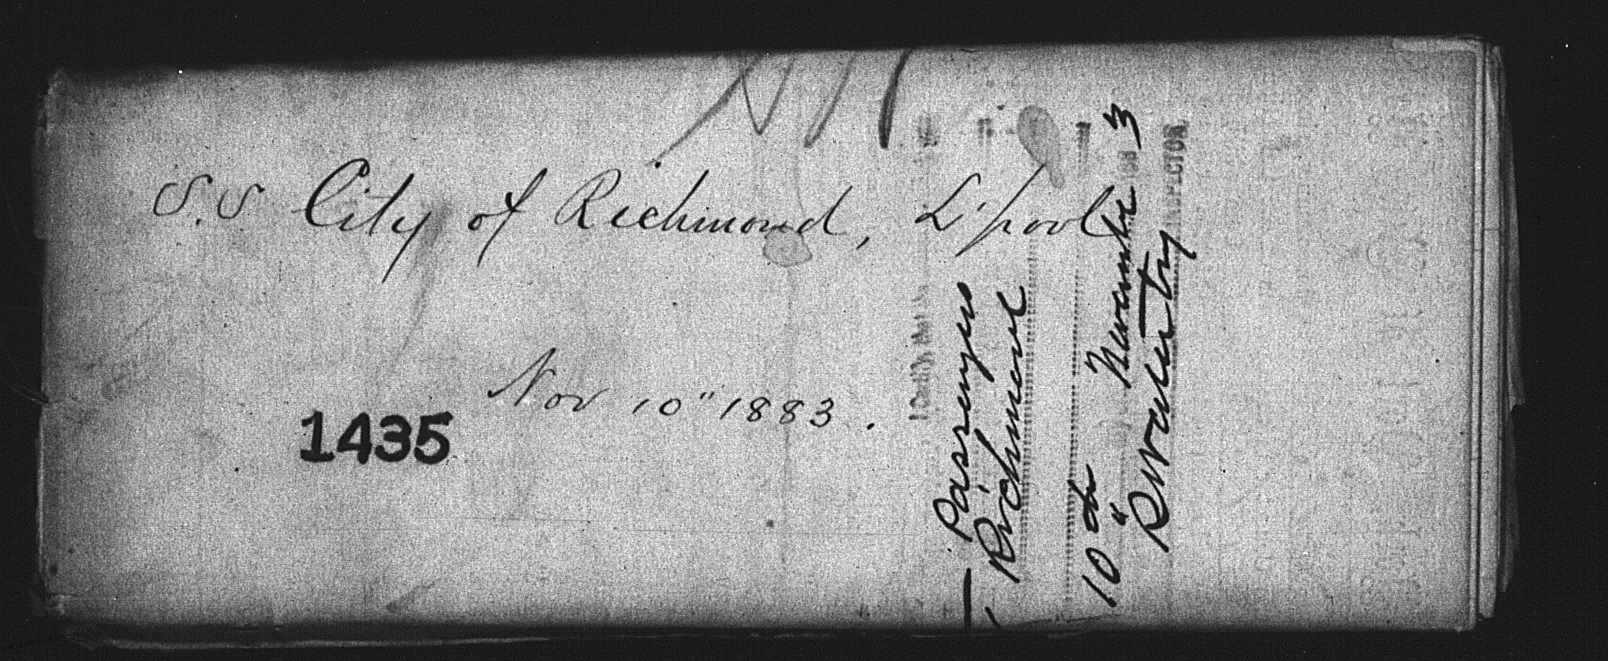 S.S City of Richmond, L'pool
Nov 10" 1883.
1435
Passengers
Richmond
10th November 3
INSPECTOR.